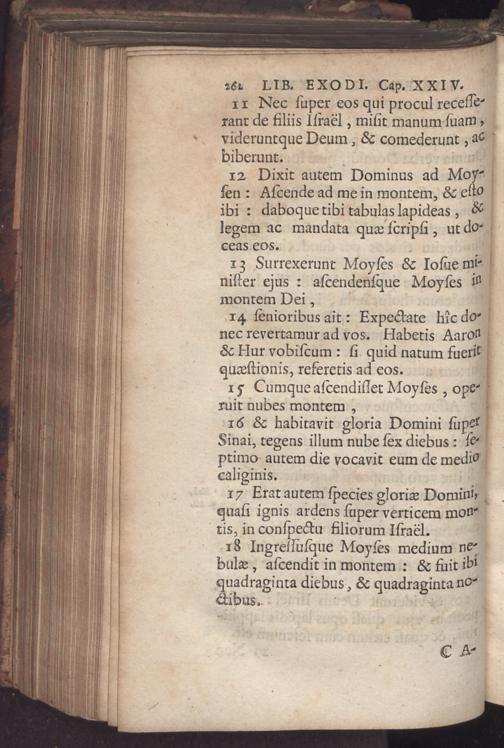 262 LIB. EXODI. Cap. XXIV.
11 Nec ſuper eos qui procul receſſe-
rant de filiis Iſraël, miſit manum ſuam,
videruntque Deum, & comederunt, ac
biberunt.
12 Dixit autem Dominus ad Moy-
ſen : Aſcende ad me in montem, & eſto
ibi : daboque tibi tabulas lapideas, &
legem ac mandata quæ ſcripſi, ut do-
ceas eos.
13 Surrexerunt Moyſes & Ioſue mi-
niſter ejus : aſcendenſque Moyſes in
montem Dei,
14 ſenioribus ait : Expectate hîc do-
nec revertamur ad vos. Habetis Aaron
& Hur vobiſcum : ſi quid natum fuerit
quæſtionis, referetis ad eos.
15 Cumque aſcendiſſet Moyſes, ope-
ruit nubes montem,
16 & habitavit gloria Domini ſuper
Sinai, tegens illum nube ſex diebus : ſe-
ptimo autem die vocavit eum de medio
caliginis.
17 Erat autem ſpecies gloriæ Domini,
quaſi ignis ardens ſuper verticem mon-
tis, in conſpectu filiorum Iſraël.
18 Ingreſſuſque Moyſes medium ne-
bulæ, aſcendit in montem : & fuit ibi
quadraginta diebus, & quadraginta no-
ctibus.
C A-